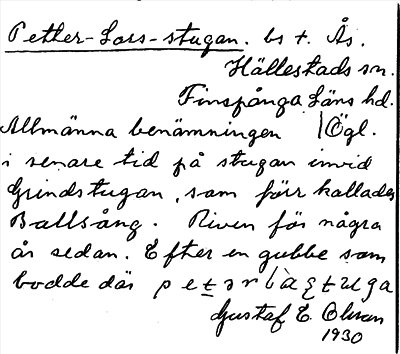 Petter-Lars-stugan. bs t. Ås.
Hällestads sn.
Finspånga läns hd.
Allmänna benämningen /Ögl.
i senare tid på stugan invid
Grindstugan, som förr kallades
Ballsång. Riven för några
år sedan. Efter en gubbe som
bodde där
Gustaf E. Olsson
1930